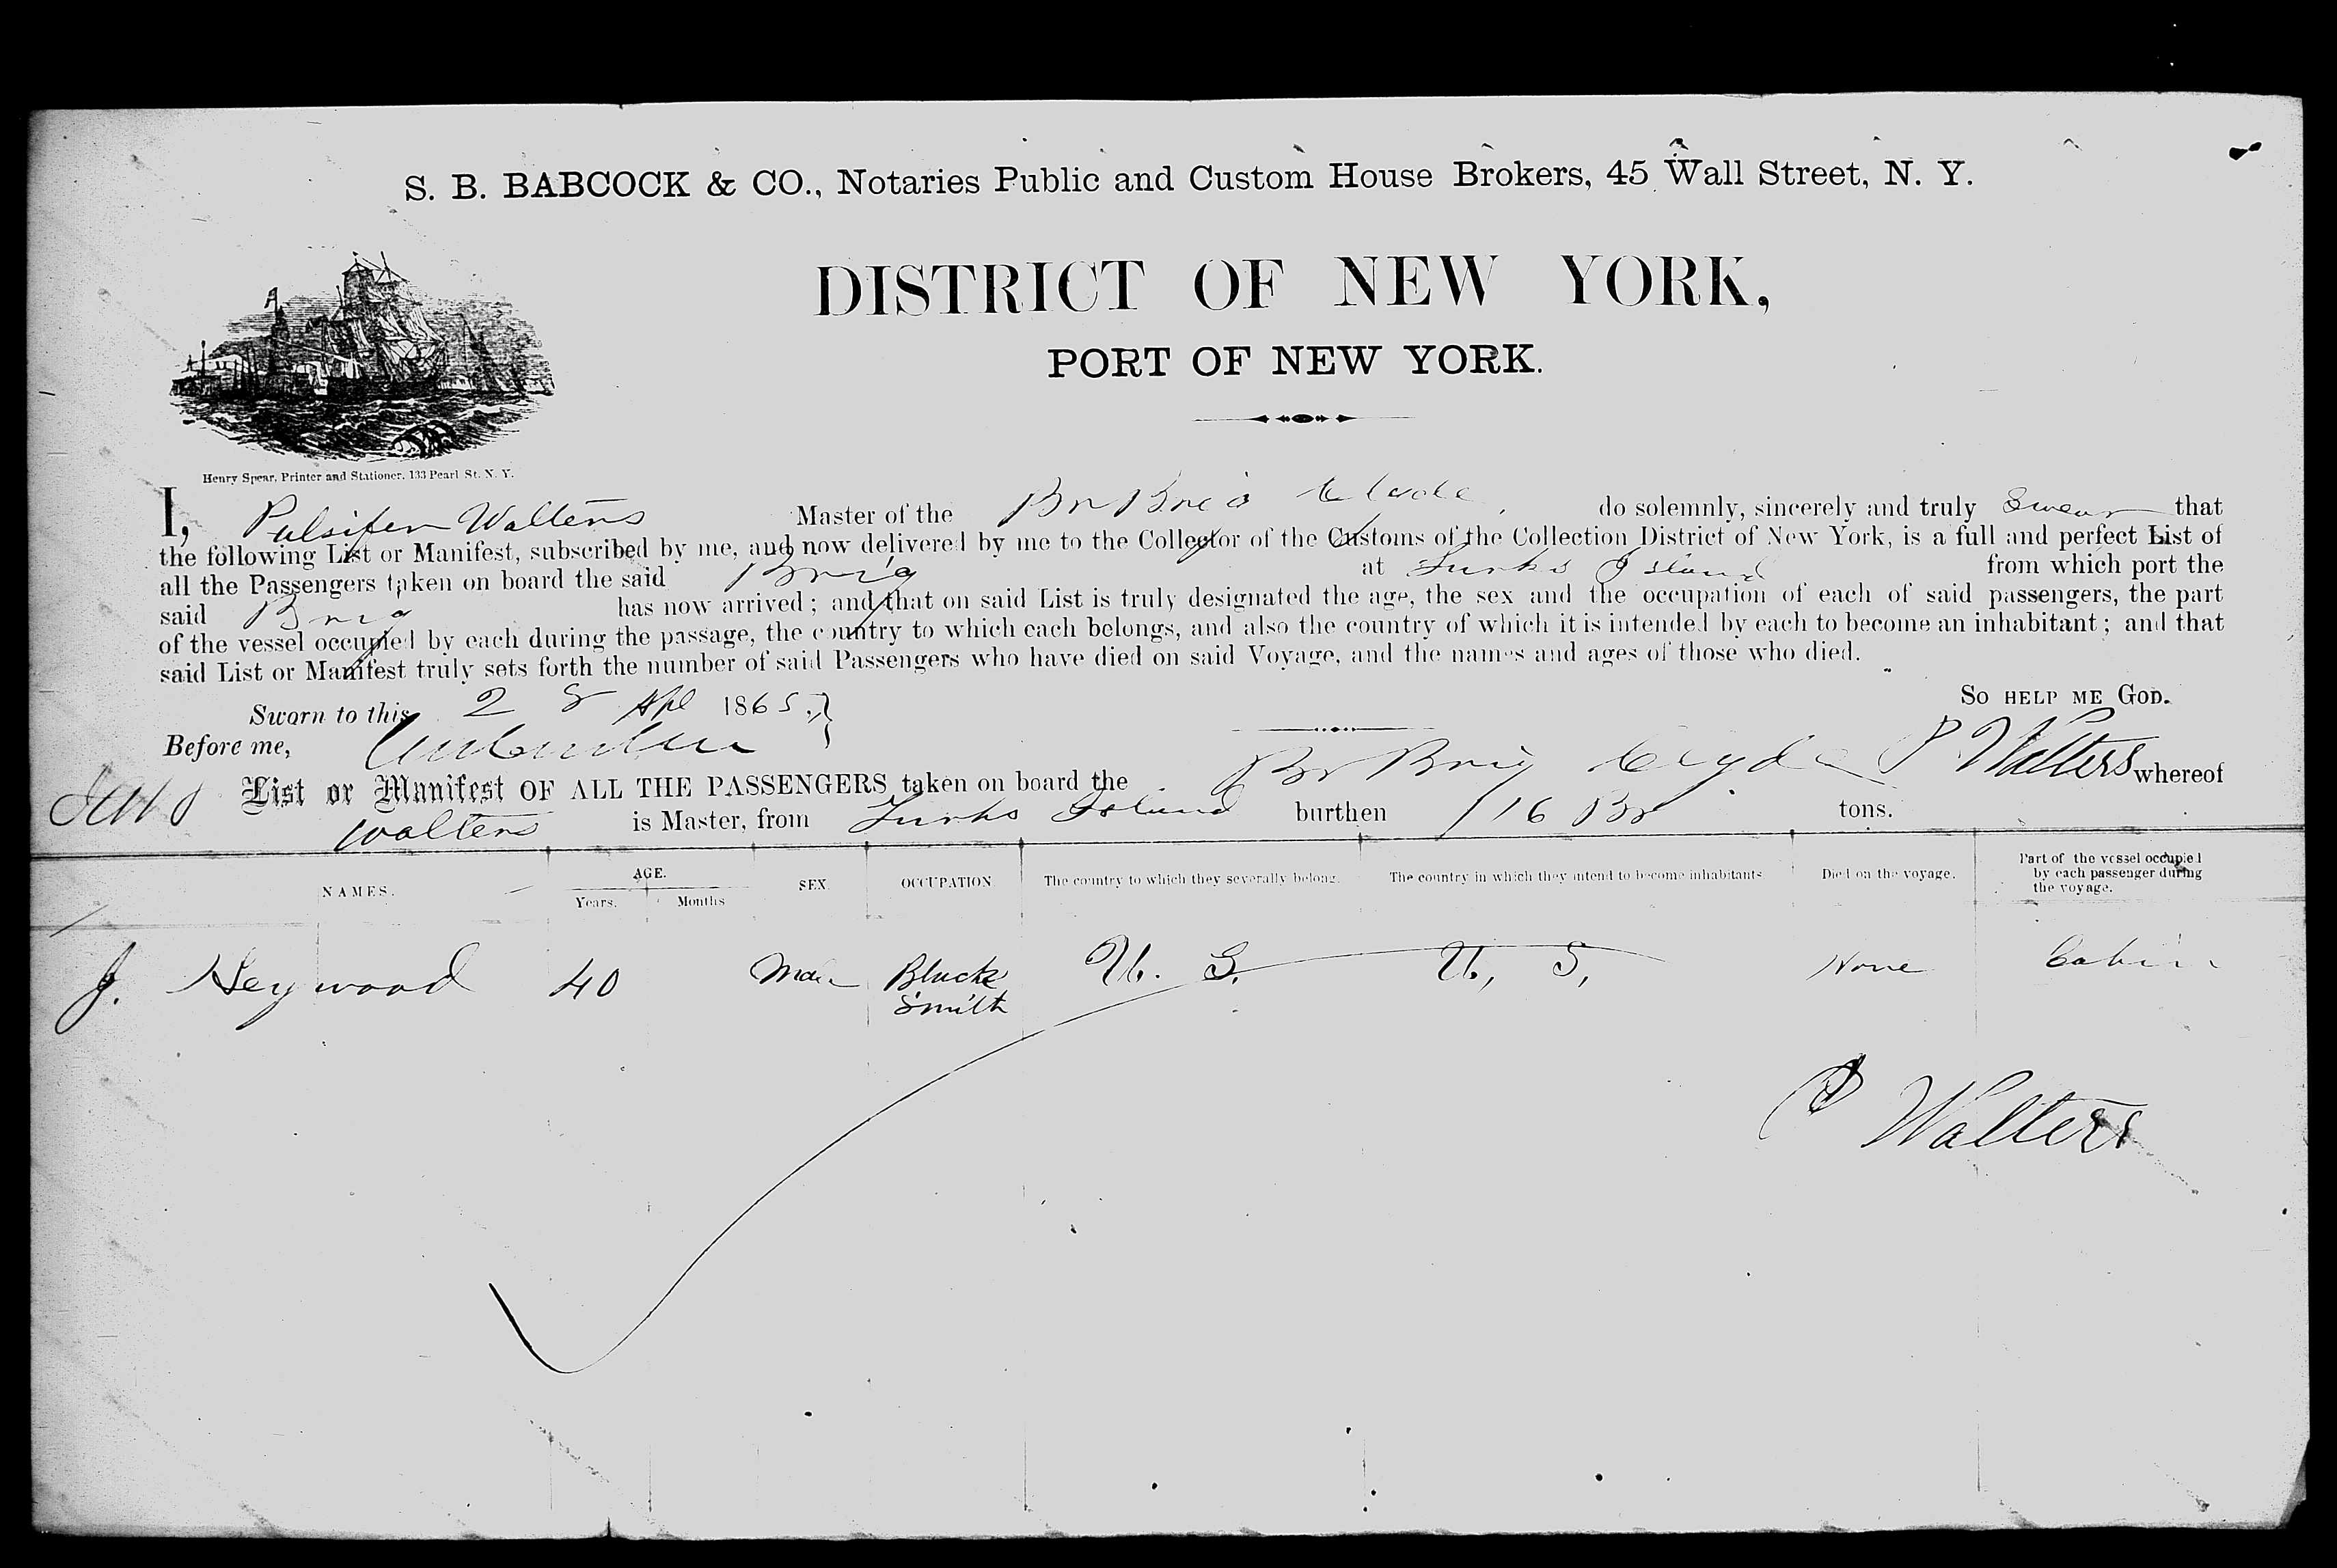 S. B. BABCOCK & CO., Notaries Public and Custom House Brokers, 45 Wall Street, N. Y.
DISTRICT OF NEW YORK,
PORT OF NEW YORK.
Henry Spear, Printer and Stationer, 133 Pearl St. N. Y.
I, Pulsifer Walters Master of the Br Brig Clyde do solemnly, sincerely and truly Swear that
the following List or Manifest, subscribed by me, and now delivered by me to the Collector of the Customs of the Collection District of New York, is a full and perfect List of
all the Passengers taken on board the said Brig at Turks Island from which port the
said Brig has now arrived; and that on said List is truly designated the age, the sex and the occupation of each of said passengers, the part
of the vessel occupied by each during the passage, the country to which each belongs, and also the country of which it is intended by each to become an inhabitant; and that
said List or Manifest truly sets forth the number of said Passengers who have died on said Voyage, and the names and ages of those who died.
So help me God.
Sworn to this 28 Apl 1865.
Before me,
P Walters
List or Manifest OF ALL THE PASSENGERS taken on board the Br Brig Clyde whereof
Walters is Master, from Turks Island burthen 116 Br tons.
NAMES. AGE. Years. Months SEX. OCCUPATION. The country to which they severally belong. The country in which they intend to become inhabitants. Died on the voyage. Part of the vessel occupied by each passenger during the voyage.
J. Heywood 40 Man Black Smith U. S. U. S. None Cabin
P Walters